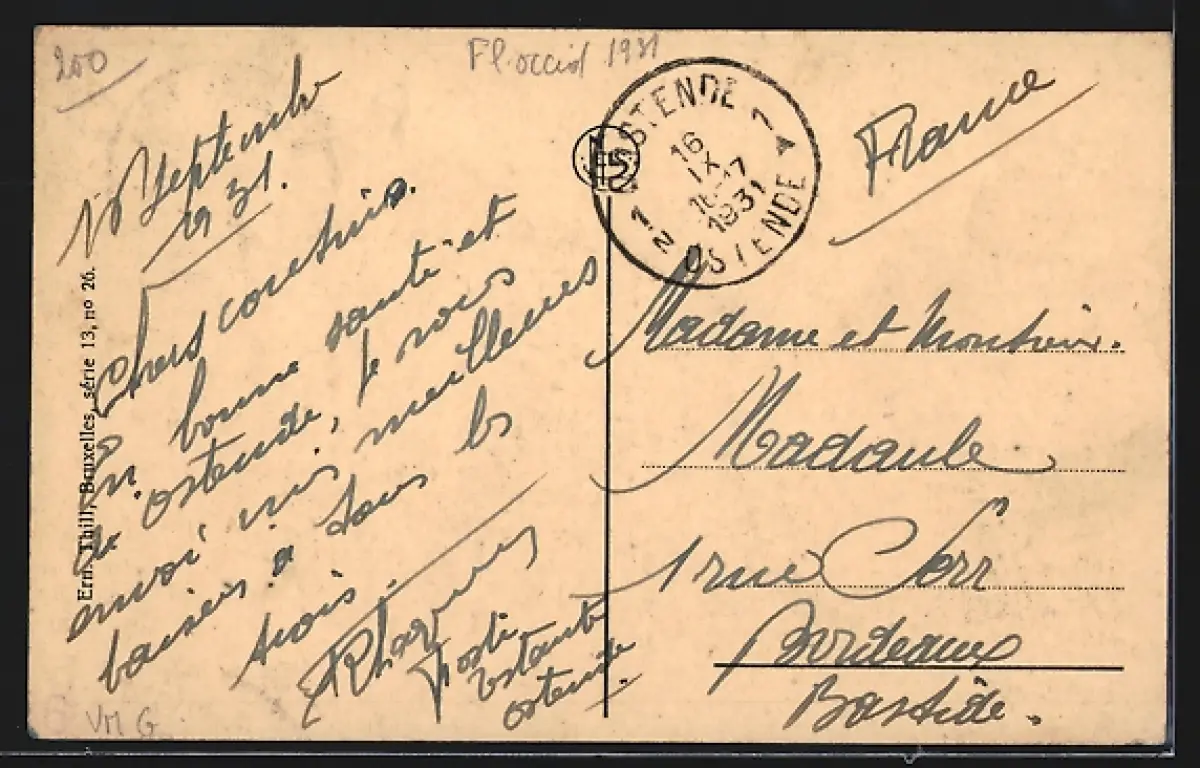 200
Fl. occid 1931
Septembre
1931.
Chers cousins.
En bonne santé et
à ostende, je vous
envoi mes meilleures
baisers a tous les
trois.
Poste
restante
ostende.
VM G
Ern. Thill, Bruxelles, série 13, nº 26.
OSTENDE
16
IX
1931
1N OSTENDE 1
France
Madame et Monsieur.
Madaule
1 rue Serr
Bordeaux
Bastide.